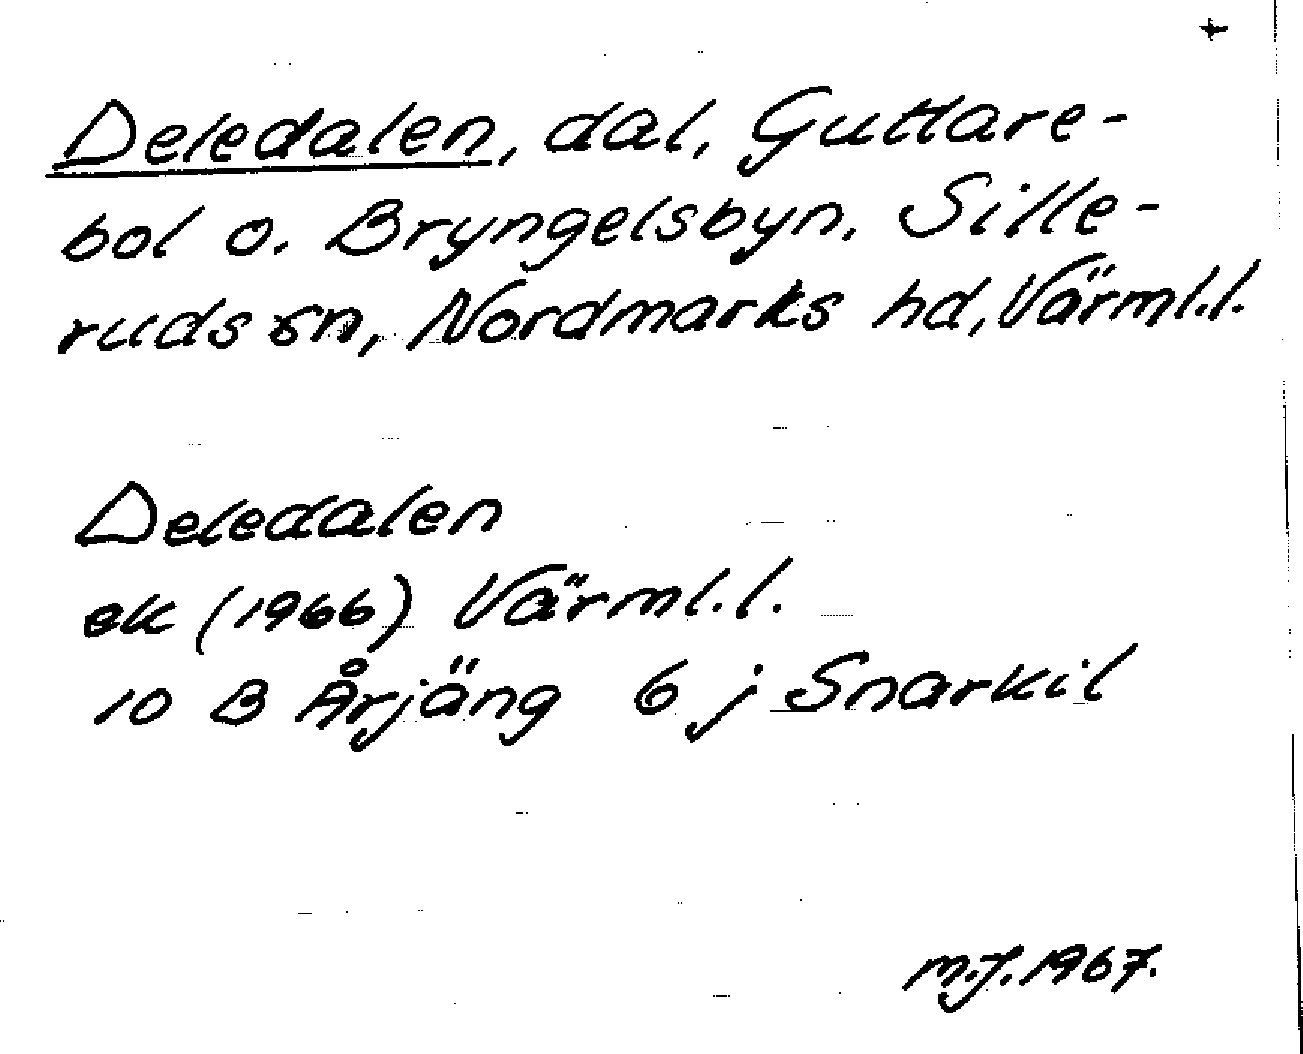 +
Deledalen, dal, Guttare-
bol o. Bryngelsbyn, Sille-
ruds sn, Nordmarks hd, Värml.l.
Deledalen
ek (1966) Värml.l.
10 B Årjäng 6 j Snarkil
M.J. 1967.